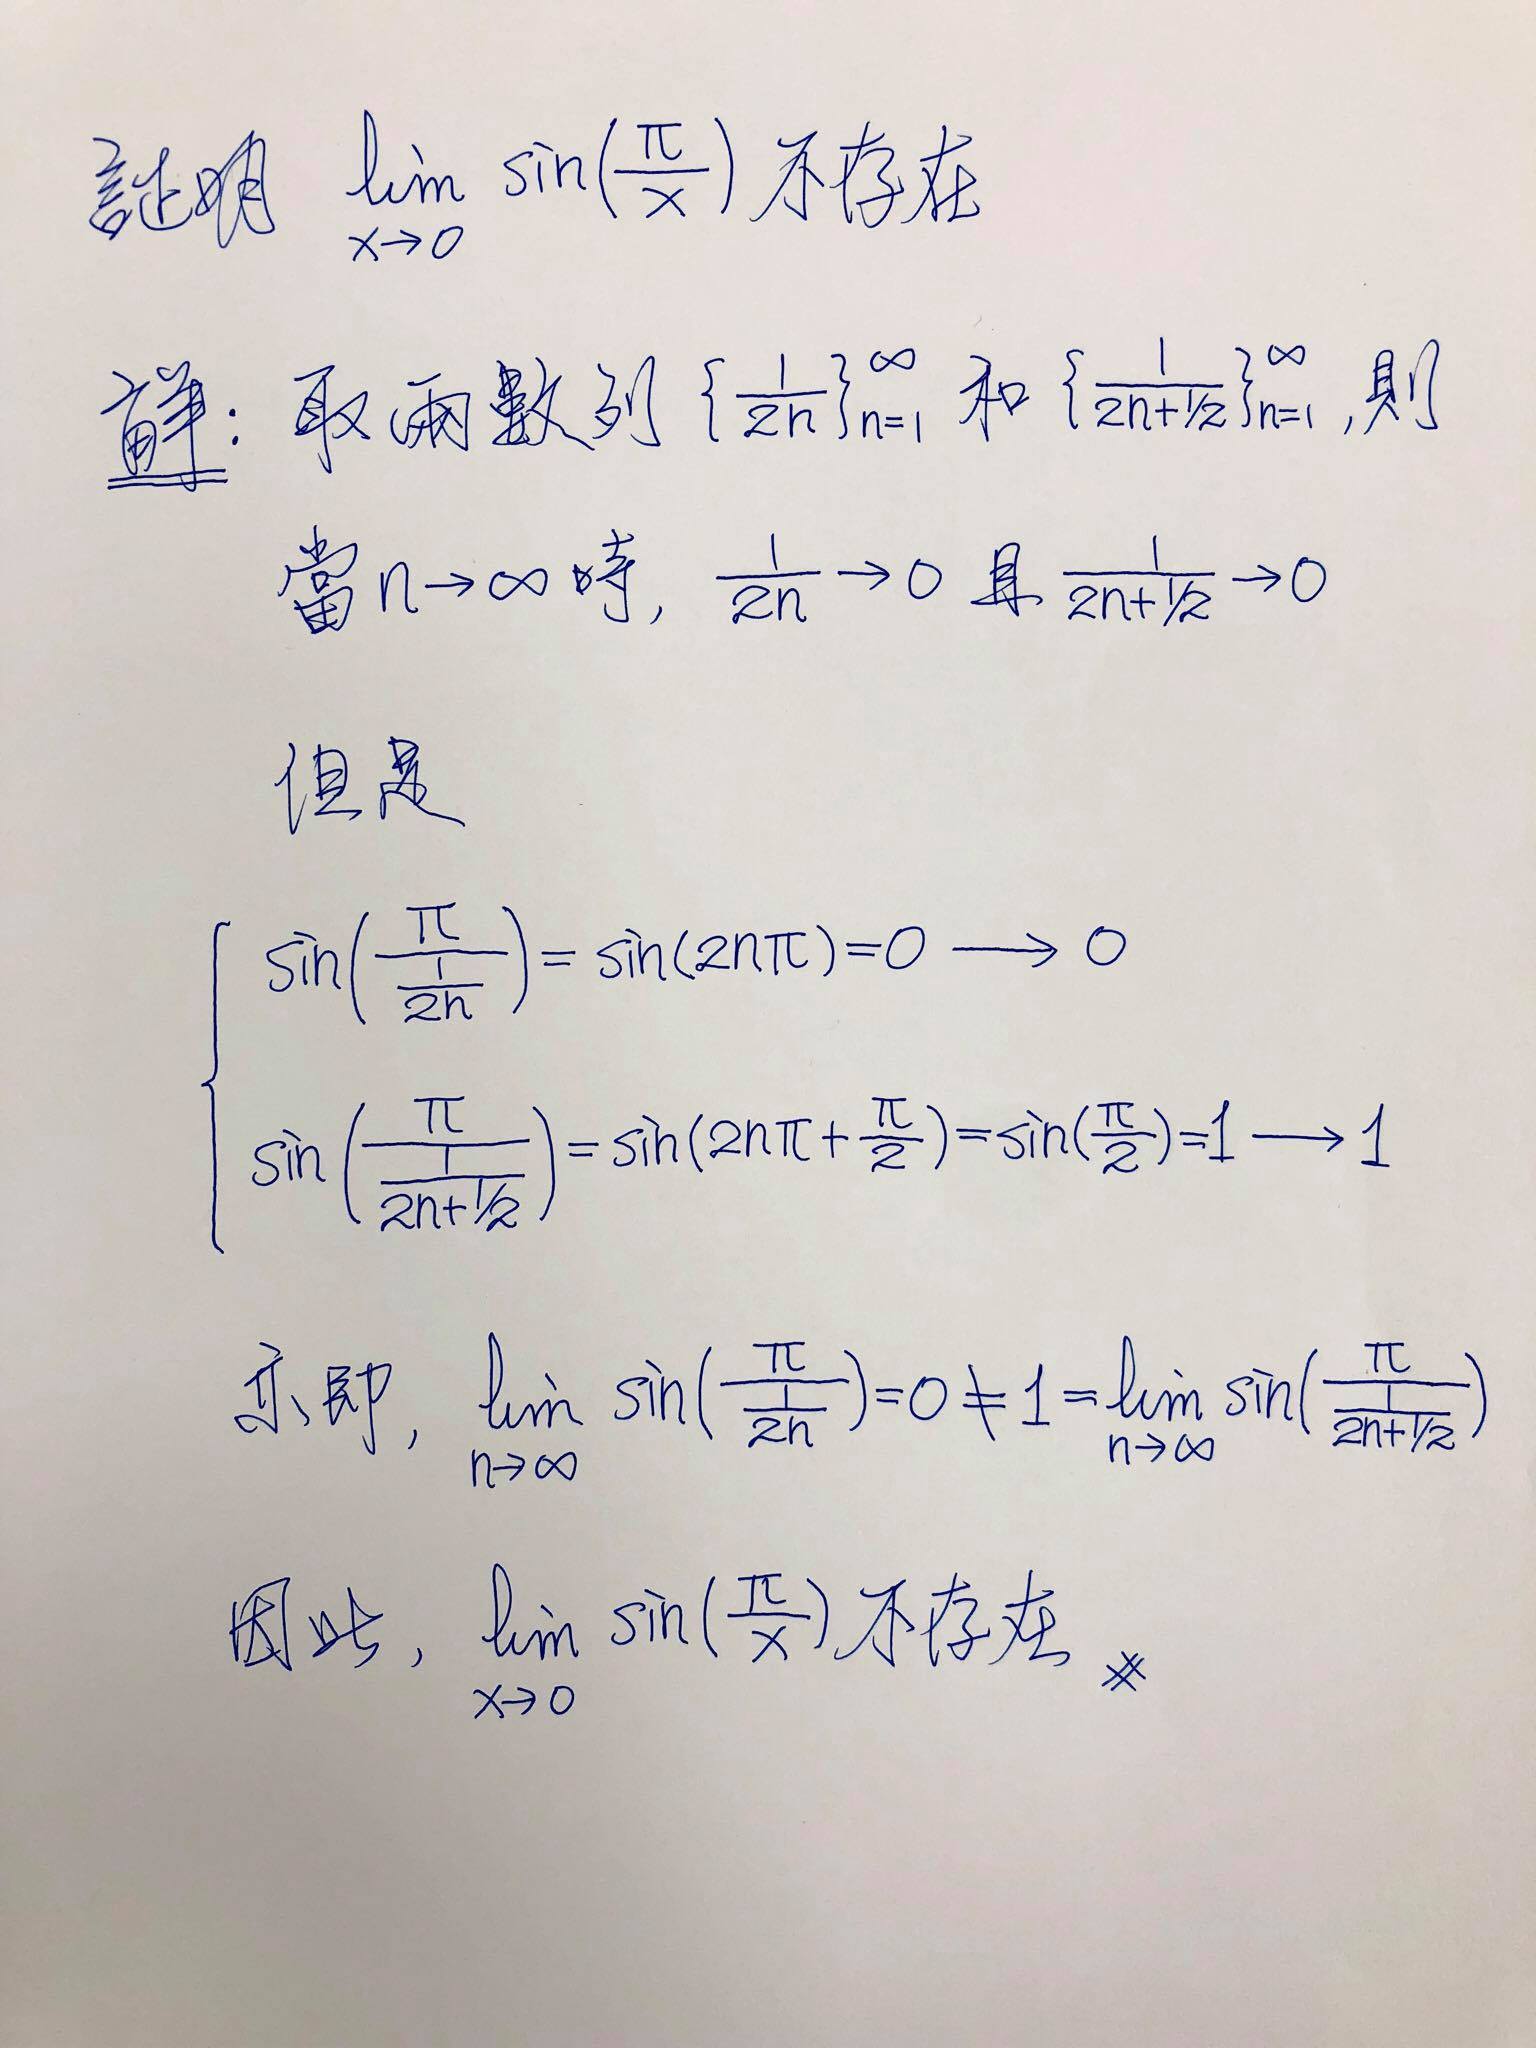 証明 lim_{x→0} sin(π/x) 不存在
詳: 取兩數列 {1/2n}_{n=1}^∞ 和 {1/(2n+1/2)}_{n=1}^∞, 則
當 n→∞ 時, 1/2n → 0 且 1/(2n+1/2) → 0
但是
sin(π/(1/2n)) = sin(2nπ) = 0 ⟶ 0
sin(π/(1/(2n+1/2))) = sin(2nπ + π/2) = sin(π/2) = 1 ⟶ 1
亦即, lim_{n→∞} sin(π/(1/2n)) = 0 ≠ 1 = lim_{n→∞} sin(π/(1/(2n+1/2)))
因此, lim_{x→0} sin(π/x) 不存在 ※